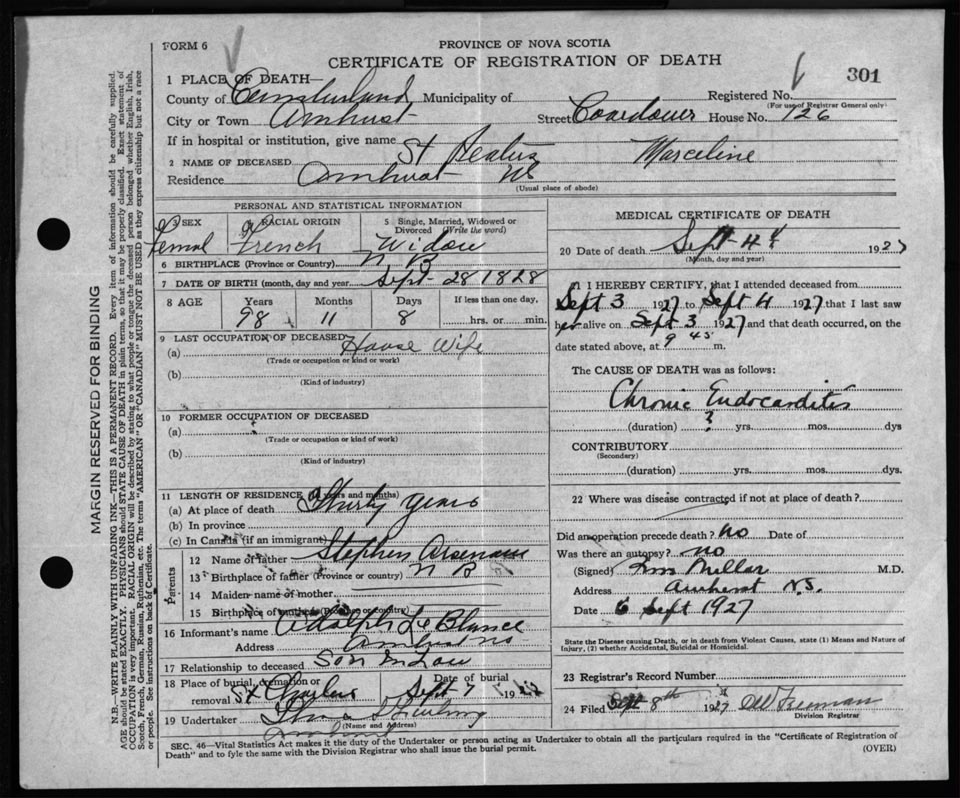 FORM 6
PROVINCE OF NOVA SCOTIA
CERTIFICATE OF REGISTRATION OF DEATH
301
1 PLACE OF DEATH—
County of Cumberland Municipality of
Registered No.
(For use of Registrar General only)
City or Town Amherst Street House No. 126
If in hospital or institution, give name
2 NAME OF DECEASED St Marceline
Residence Amherst NS
(Usual place of abode)
PERSONAL AND STATISTICAL INFORMATION
SEX
RACIAL ORIGIN
5 Single, Married, Widowed or Divorced (Write the word)
Femal French Widow
6 BIRTHPLACE (Province or Country) N B
7 DATE OF BIRTH (month, day and year) Sept 28 1828
8 AGE Years Months Days If less than one day,
98 11 8 hrs. or min.
9 LAST OCCUPATION OF DECEASED
(a) House Wife
(Trade or occupation or kind or work)
(b)
(Kind of industry)
10 FORMER OCCUPATION OF DECEASED
(a)
(Trade or occupation or kind of work)
(b)
(Kind of industry)
11 LENGTH OF RESIDENCE (in years and months)
(a) At place of death Thirty years
(b) In province
(c) In Canada (if an immigrant)
Parents
12 Name of father Stephen Arsenau
13 Birthplace of father (Province or country) N B
14 Maiden name of mother
15 Birthplace of mother (Province or country)
16 Informant's name Adolph LeBlance
Address Amherst NS
17 Relationship to deceased Son in Law
18 Place of burial, cremation or removal St Charles Date of burial Sept 7 1927
19 Undertaker
(Name and Address)
Amherst
MEDICAL CERTIFICATE OF DEATH
20 Date of death Sept 4 1927
(Month, day and year)
21 I HEREBY CERTIFY, that I attended deceased from
Sept 3 1927 to Sept 4 1927 that I last saw
her alive on Sept 3 1927 and that death occurred, on
date stated above, at 9 45 m.
The CAUSE OF DEATH was as follows:
Chronic Endocarditis
(duration) ? yrs. mos. dys
CONTRIBUTORY
(Secondary)
(duration) yrs. mos. dys.
22 Where was disease contracted if not at place of death?
Did an operation precede death? No Date of
Was there an autopsy? no
(Signed) Millar M.D.
Address Amherst N.S.
Date 6 Sept 1927
State the Disease causing Death, or in death from Violent Causes, state (1) Means and Nature of
Injury, (2) whether Accidental, Suicidal or Homicidal.
23 Registrar's Record Number
24 Filed Sept 8th 1927
Division Registrar
SEC. 46—Vital Statistics Act makes it the duty of the Undertaker or person acting as Undertaker to obtain all the particulars required in the "Certificate of Registration of
Death" and to fyle the same with the Division Registrar who shall issue the burial permit.
(OVER)
MARGIN RESERVED FOR BINDING
N.B.—WRITE PLAINLY WITH UNFADING INK—THIS IS A PERMANENT RECORD. Every item of information should be carefully supplied.
AGE should be stated EXACTLY. PHYSICIANS should STATE CAUSE OF DEATH in plain terms, so that it may be properly classified. Exact statement of
OCCUPATION is very important. RACIAL ORIGIN will be described by stating to what people or tongue the deceased person belonged whether English, Irish,
Scotch, French, German, Russian, Ruthenian, etc. The terms "AMERICAN" OR "CANADIAN" MUST NOT BE USED as they express citizenship but not a race
or people. See instructions on back of Certificate.